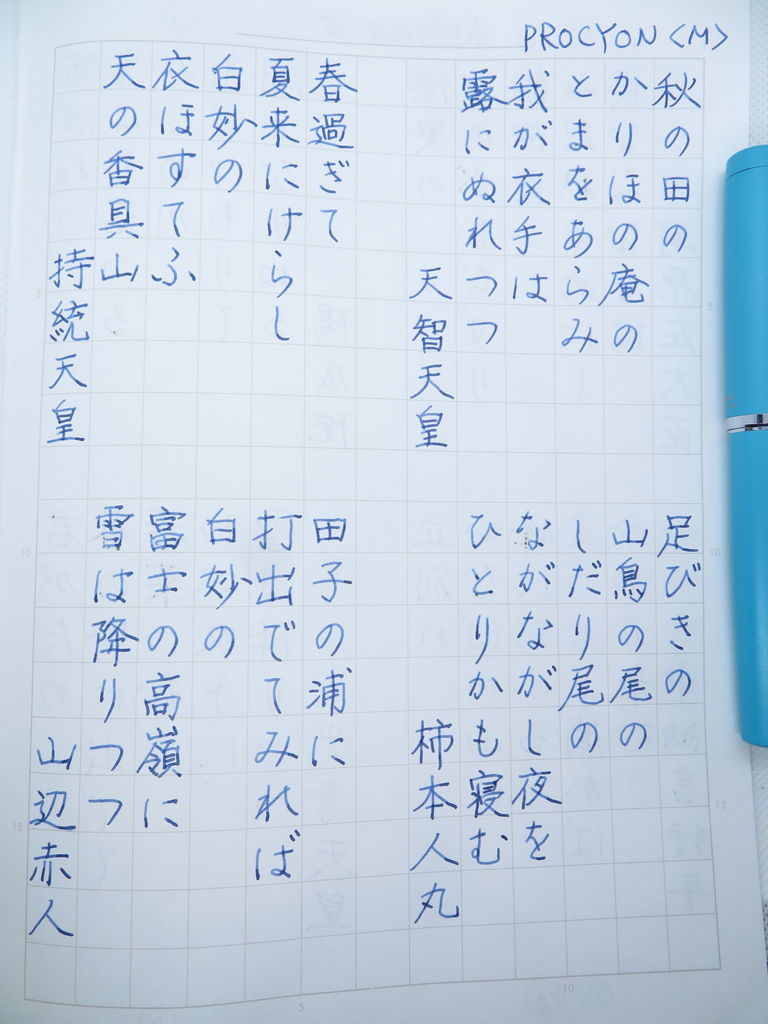 PROCYON <M>
秋の田の
かりほの庵の
とまをあらみ
我が衣手は
露にぬれつつ
天智天皇
春過ぎて
夏来にけらし
白妙の
衣ほすてふ
天の香具山
持統天皇
足びきの
山鳥の尾の
しだり尾の
ながながし夜を
ひとりかも寝む
柿本人丸
田子の浦に
打出でてみれば
白妙の
富士の高嶺に
雪は降りつつ
山辺赤人